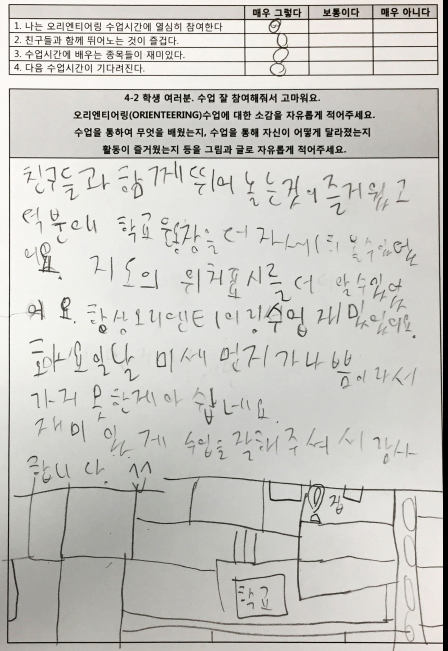 매우 그렇다 보통이다 매우 아니다
1. 나는 오리엔티어링 수업시간에 열심히 참여한다
2. 친구들과 함께 뛰어노는 것이 즐겁다.
3. 수업시간에 배우는 종목들이 재미있다.
4. 다음 수업시간이 기다려진다.
4-2 학생 여러분. 수업 잘 참여해줘서 고마워요.
오리엔티어링(ORIENTEERING)수업에 대한 소감을 자유롭게 적어주세요.
수업을 통하여 무엇을 배웠는지, 수업을 통해 자신이 어떻게 달라졌는지
활동이 즐거웠는지 등을 그림과 글로 자유롭게 적어주세요.
친구들과 함께 뛰어 노는것이 즐거웠고
덕분에 학교 운동장을 더 자세히 볼수있었
어요. 지도의 위치표시를 더 알수있었
어요. 항상오리엔티어링수업 재밌었어요.
화요일날 미세먼지가나쁨이라서
가지 못한게아쉽네요
재미있게 수업을잘해주셔서 감사
합니다.
집
학교